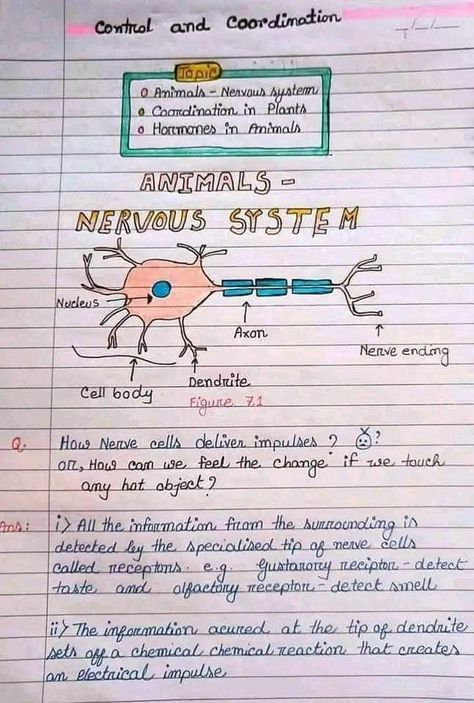 Control and Coordination
_/_/_
Topic
Animals - Nervous system
Coordination in Plants
Hormones in Animals
ANIMALS -
NERVOUS SYSTEM
Nucleus
Axon
Nerve ending
Cell body
Dendrite
Figure 7.1
Q. How Nerve cells deliver impulses ? ?
or, How can we feel the change if we touch
any hot object?
Ans: i) All the information from the surrounding is
detected by the specialised tip of nerve cells
called receptors. e.g. Gustarory reciptor - detect
taste and olfactory receptor - detect smell
ii) The information acured at the tip of dendrite
sets off a chemical chemical reaction that creates
an electrical impulse